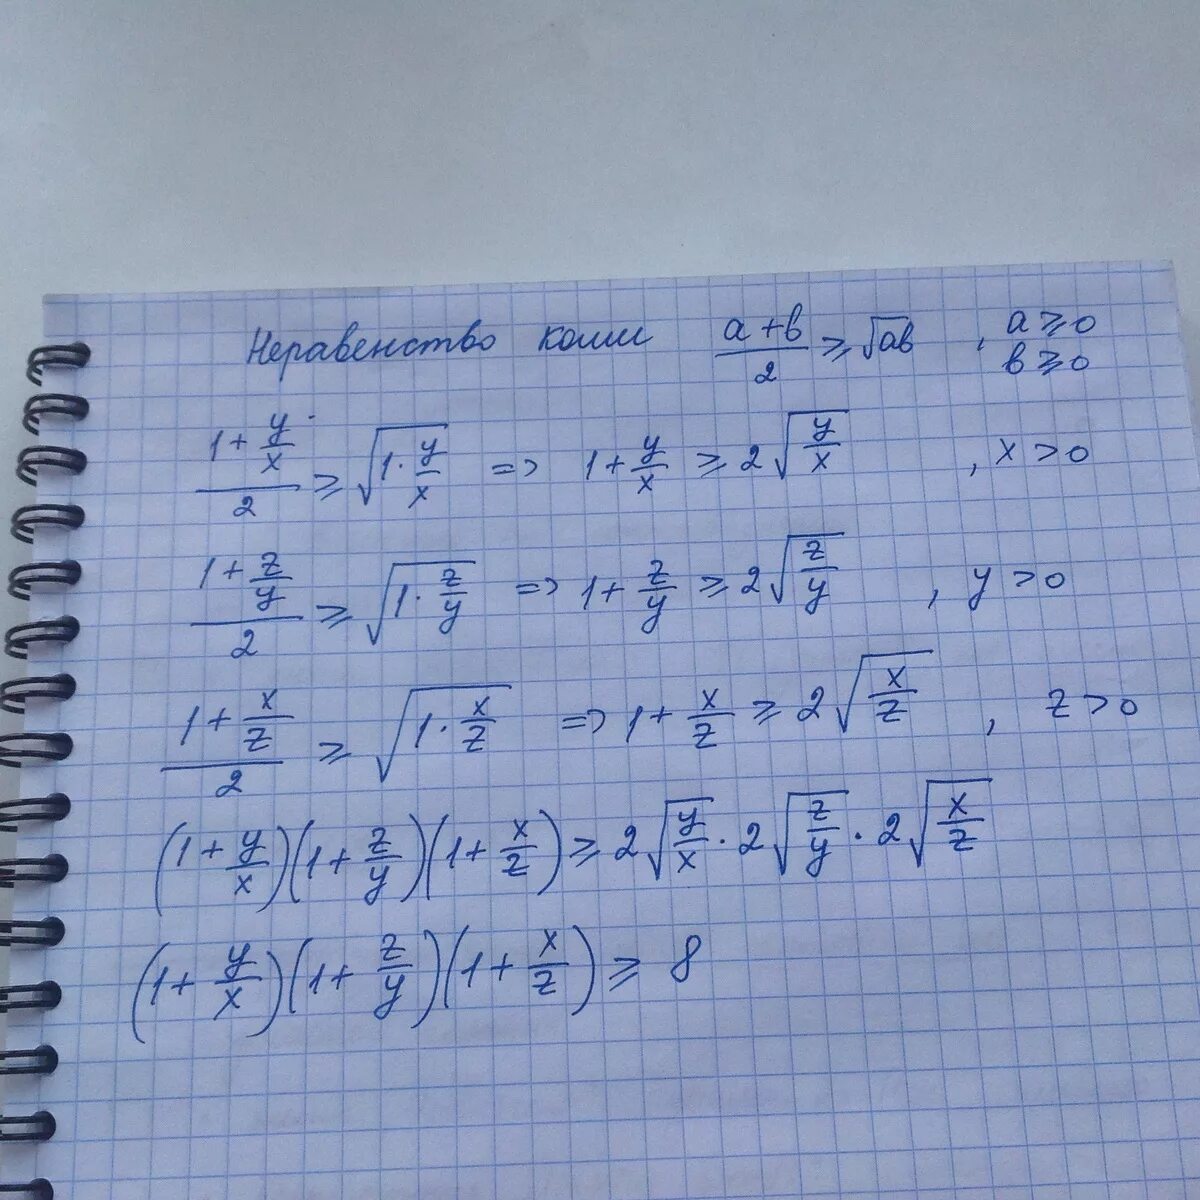 Неравенство Коши (a+b)/2 ⩾ √ab , a⩾0 b⩾0
(1+y/x)/2 ⩾ √(1·y/x) => 1+y/x ⩾ 2√(y/x) , x>0
(1+z/y)/2 ⩾ √(1·z/y) => 1+z/y ⩾ 2√(z/y) , y>0
(1+x/z)/2 ⩾ √(1·x/z) => 1+x/z ⩾ 2√(x/z) , z>0
(1+y/x)(1+z/y)(1+x/z) ⩾ 2√(y/x)·2√(z/y)·2√(x/z)
(1+y/x)(1+z/y)(1+x/z) ⩾ 8